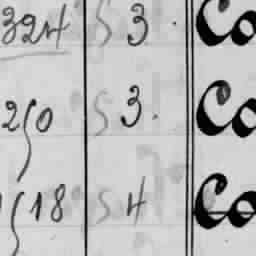 324 S 3. Co
250 S 3. Co
518 S 4 Co